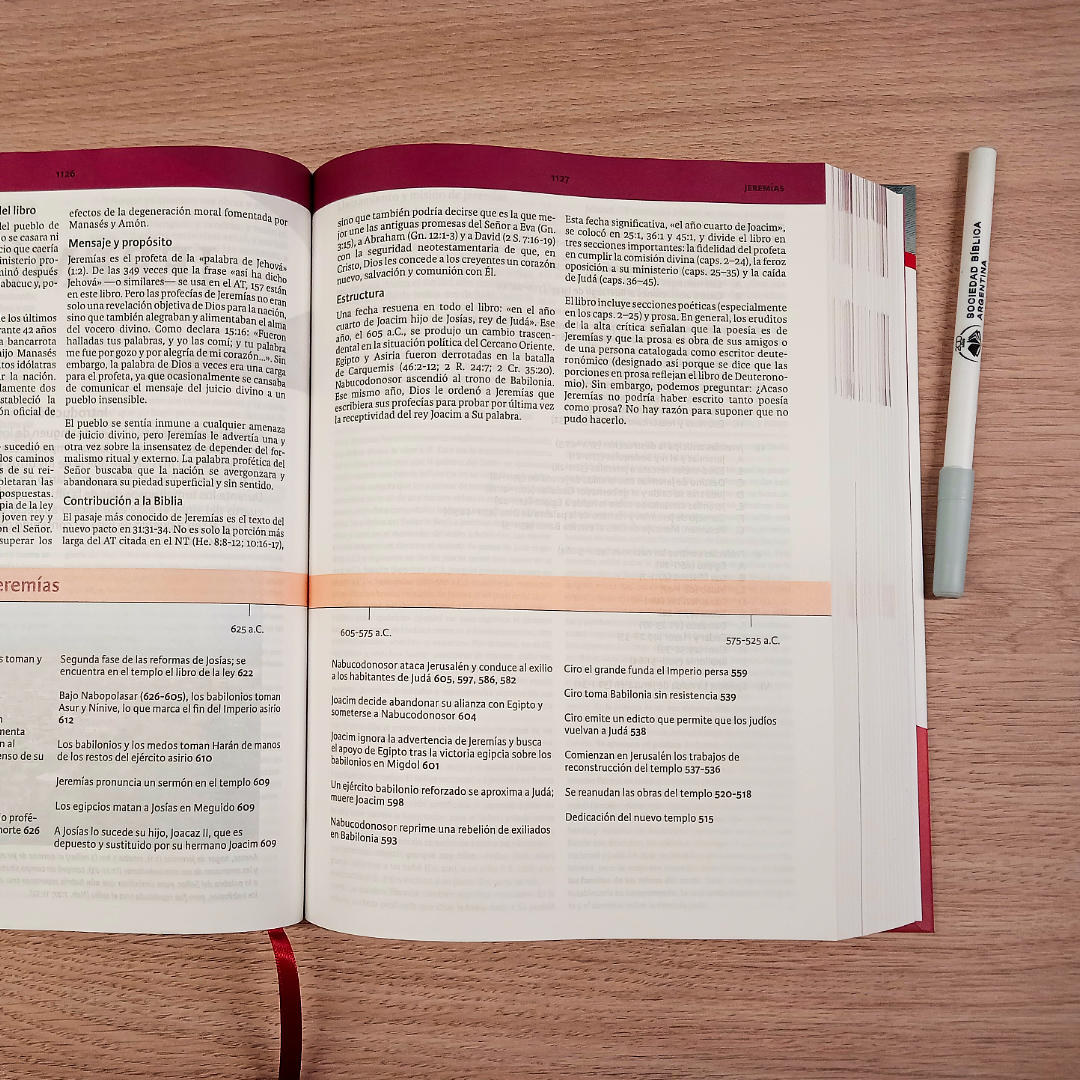 1126
del libro
del pueblo de
o se casara ni
cio que caería
inisterio pro-
minó después
abacuc y, po-
e los últimos
rante 42 años
a bancarrota
hijo Manasés
tos idólatras
r la nación.
lamente dos
stableció la
ón oficial de
sucedió en
los caminos
s de su rei-
pletaran las
pospuestas.
pia de la ley
joven rey y
on el Señor.
superar los
efectos de la degeneración moral fomentada por
Manasés y Amón.
Mensaje y propósito
Jeremías es el profeta de la «palabra de Jehová»
(1:2). De las 349 veces que la frase «así ha dicho
Jehová» —o similares— se usa en el AT, 157 están
en este libro. Pero las profecías de Jeremías no eran
solo una revelación objetiva de Dios para la nación,
sino que también alegraban y alimentaban el alma
del vocero divino. Como declara 15:16: «Fueron
halladas tus palabras, y yo las comí; y tu palabra
me fue por gozo y por alegría de mi corazón...». Sin
embargo, la palabra de Dios a veces era una carga
para el profeta, ya que ocasionalmente se cansaba
de comunicar el mensaje del juicio divino a un
pueblo insensible.
El pueblo se sentía inmune a cualquier amenaza
de juicio divino, pero Jeremías le advertía una y
otra vez sobre la insensatez de depender del for-
malismo ritual y externo. La palabra profética del
Señor buscaba que la nación se avergonzara y
abandonara su piedad superficial y sin sentido.
Contribución a la Biblia
El pasaje más conocido de Jeremías es el texto del
nuevo pacto en 31:31-34. No es solo la porción más
larga del AT citada en el NT (He. 8:8-12; 10:16-17),
eremías
625 a.C.
s toman y
menta
n al
enso de su
o profé-
norte 626
Segunda fase de las reformas de Josías; se
encuentra en el templo el libro de la ley 622
Bajo Nabopolasar (626-605), los babilonios toman
Asur y Nínive, lo que marca el fin del Imperio asirio
612
Los babilonios y los medos toman Harán de manos
de los restos del ejército asirio 610
Jeremías pronuncia un sermón en el templo 609
Los egipcios matan a Josías en Meguido 609
A Josías lo sucede su hijo, Joacaz II, que es
depuesto y sustituido por su hermano Joacim 609
1127
JEREMÍAS
sino que también podría decirse que es la que me-
jor une las antiguas promesas del Señor a Eva (Gn.
3:15), a Abraham (Gn. 12:1-3) y a David (2 S. 7:16-19)
con la seguridad neotestamentaria de que, en
Cristo, Dios les concede a los creyentes un corazón
nuevo, salvación y comunión con Él.
Estructura
Una fecha resuena en todo el libro: «en el año
cuarto de Joacim hijo de Josías, rey de Judá». Ese
año, el 605 a.C., se produjo un cambio trascen-
dental en la situación política del Cercano Oriente.
Egipto y Asiria fueron derrotadas en la batalla
de Carquemis (46:2-12; 2 R. 24:7; 2 Cr. 35:20).
Nabucodonosor ascendió al trono de Babilonia.
Ese mismo año, Dios le ordenó a Jeremías que
escribiera sus profecías para probar por última vez
la receptividad del rey Joacim a Su palabra.
Esta fecha significativa, «el año cuarto de Joacim»,
se colocó en 25:1, 36:1 y 45:1, y divide el libro en
tres secciones importantes: la fidelidad del profeta
en cumplir la comisión divina (caps. 2–24), la feroz
oposición a su ministerio (caps. 25–35) y la caída
de Judá (caps. 36–45).
El libro incluye secciones poéticas (especialmente
en los caps. 2–25) y prosa. En general, los eruditos
de la alta crítica señalan que la poesía es de
Jeremías y que la prosa es obra de sus amigos o
de una persona catalogada como escritor deute-
ronómico (designado así porque se dice que las
porciones en prosa reflejan el libro de Deuterono-
mio). Sin embargo, podemos preguntar: ¿Acaso
Jeremías no podría haber escrito tanto poesía
como prosa? No hay razón para suponer que no
pudo hacerlo.
605-575 a.C.
575-525 a.C.
Nabucodonosor ataca Jerusalén y conduce al exilio
a los habitantes de Judá 605, 597, 586, 582
Joacim decide abandonar su alianza con Egipto y
someterse a Nabucodonosor 604
Joacim ignora la advertencia de Jeremías y busca
el apoyo de Egipto tras la victoria egipcia sobre los
babilonios en Migdol 601
Un ejército babilonio reforzado se aproxima a Judá;
muere Joacim 598
Nabucodonosor reprime una rebelión de exiliados
en Babilonia 593
Ciro el grande funda el Imperio persa 559
Ciro toma Babilonia sin resistencia 539
Ciro emite un edicto que permite que los judíos
vuelvan a Judá 538
Comienzan en Jerusalén los trabajos de
reconstrucción del templo 537-536
Se reanudan las obras del templo 520-518
Dedicación del nuevo templo 515
SOCIEDAD BÍBLICA
ARGENTINA